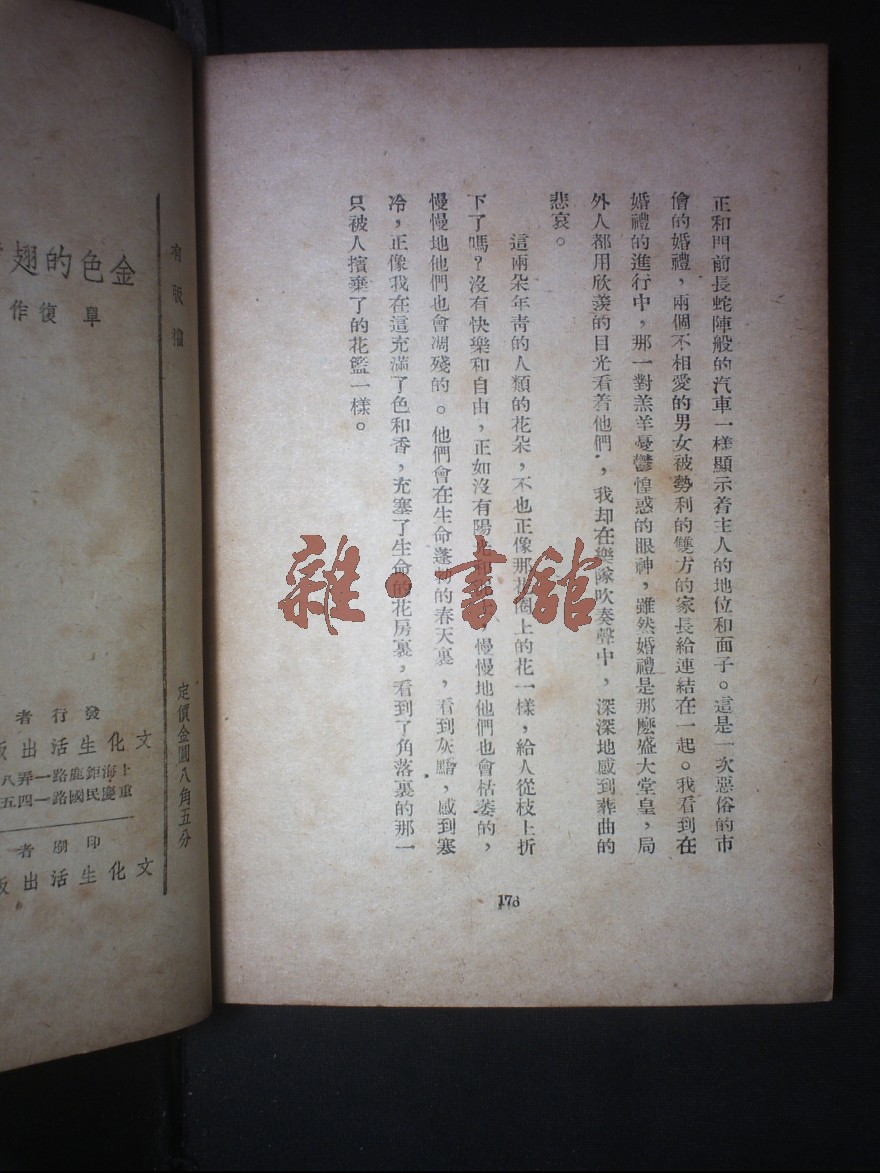 正和門前長蛇陣般的汽車一樣顯示着主人的地位和面子。這是一次惡俗的市
儈的婚禮，兩個不相愛的男女被勢利的雙方的家長給連結在一起。我看到在
婚禮的進行中，那一對羔羊憂鬱惶惑的眼神，雖然婚禮是那麼盛大堂皇，局
外人都用欣羨的目光看着他們，我却在樂隊吹奏聲中，深深地感到葬曲的
悲哀。
這兩朵年靑的人類的花朵，不也正像那花圈上的花一樣，給人從枝上折
下了嗎？沒有快樂和自由，正如沒有陽光和，慢慢地他們也會枯萎的，
慢慢地他們也會凋殘的。他們會在生命蓬勃的春天裏，看到灰黯，感到寒
冷，正像我在這充滿了色和香，充塞了生命的花房裏，看到了角落裏的那一
只被人擯棄了的花籃一樣。
176
雜·書館
有版權
金色的翅
單復作
定價金圓八角五分
發行者
文化生活出版
上海鉅鹿路一弄八
重慶民國路一四五
印刷者
文化生活出版